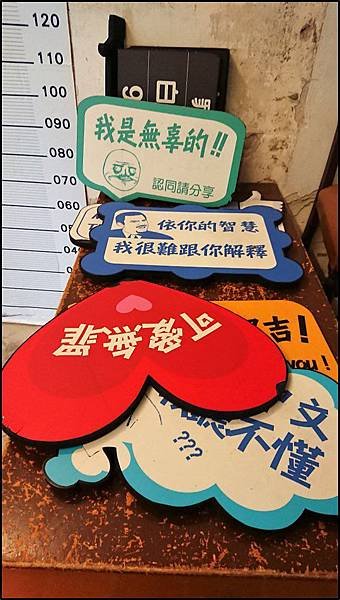 120
110
100
090
080
070
060
050
白
9
我是無辜的!!
認同請分享
依你的智慧
我很難跟你解釋
可愛無罪
吉!
文
聽不懂
???